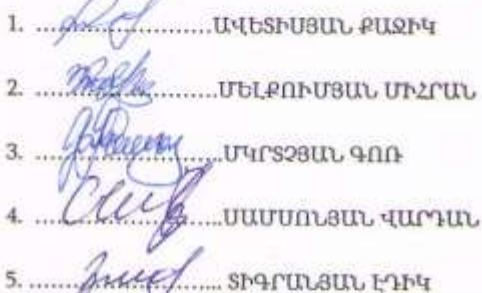 1. ..........................ԱՎԵՏԻՍՅԱՆ ՔԱՋԻԿ
2. ..........................ՄԵԼՔՈՒՄՅԱՆ ՄԻՀՐԱՆ
3. ..........................ՄԿՐՏՉՅԱՆ ԳՈՌ
4. ..........................ՍԱՄՍՈՆՅԱՆ ՎԱՐԴԱՆ
5. .......................... ՏԻԳՐԱՆՅԱՆ ԷԴԻԿ